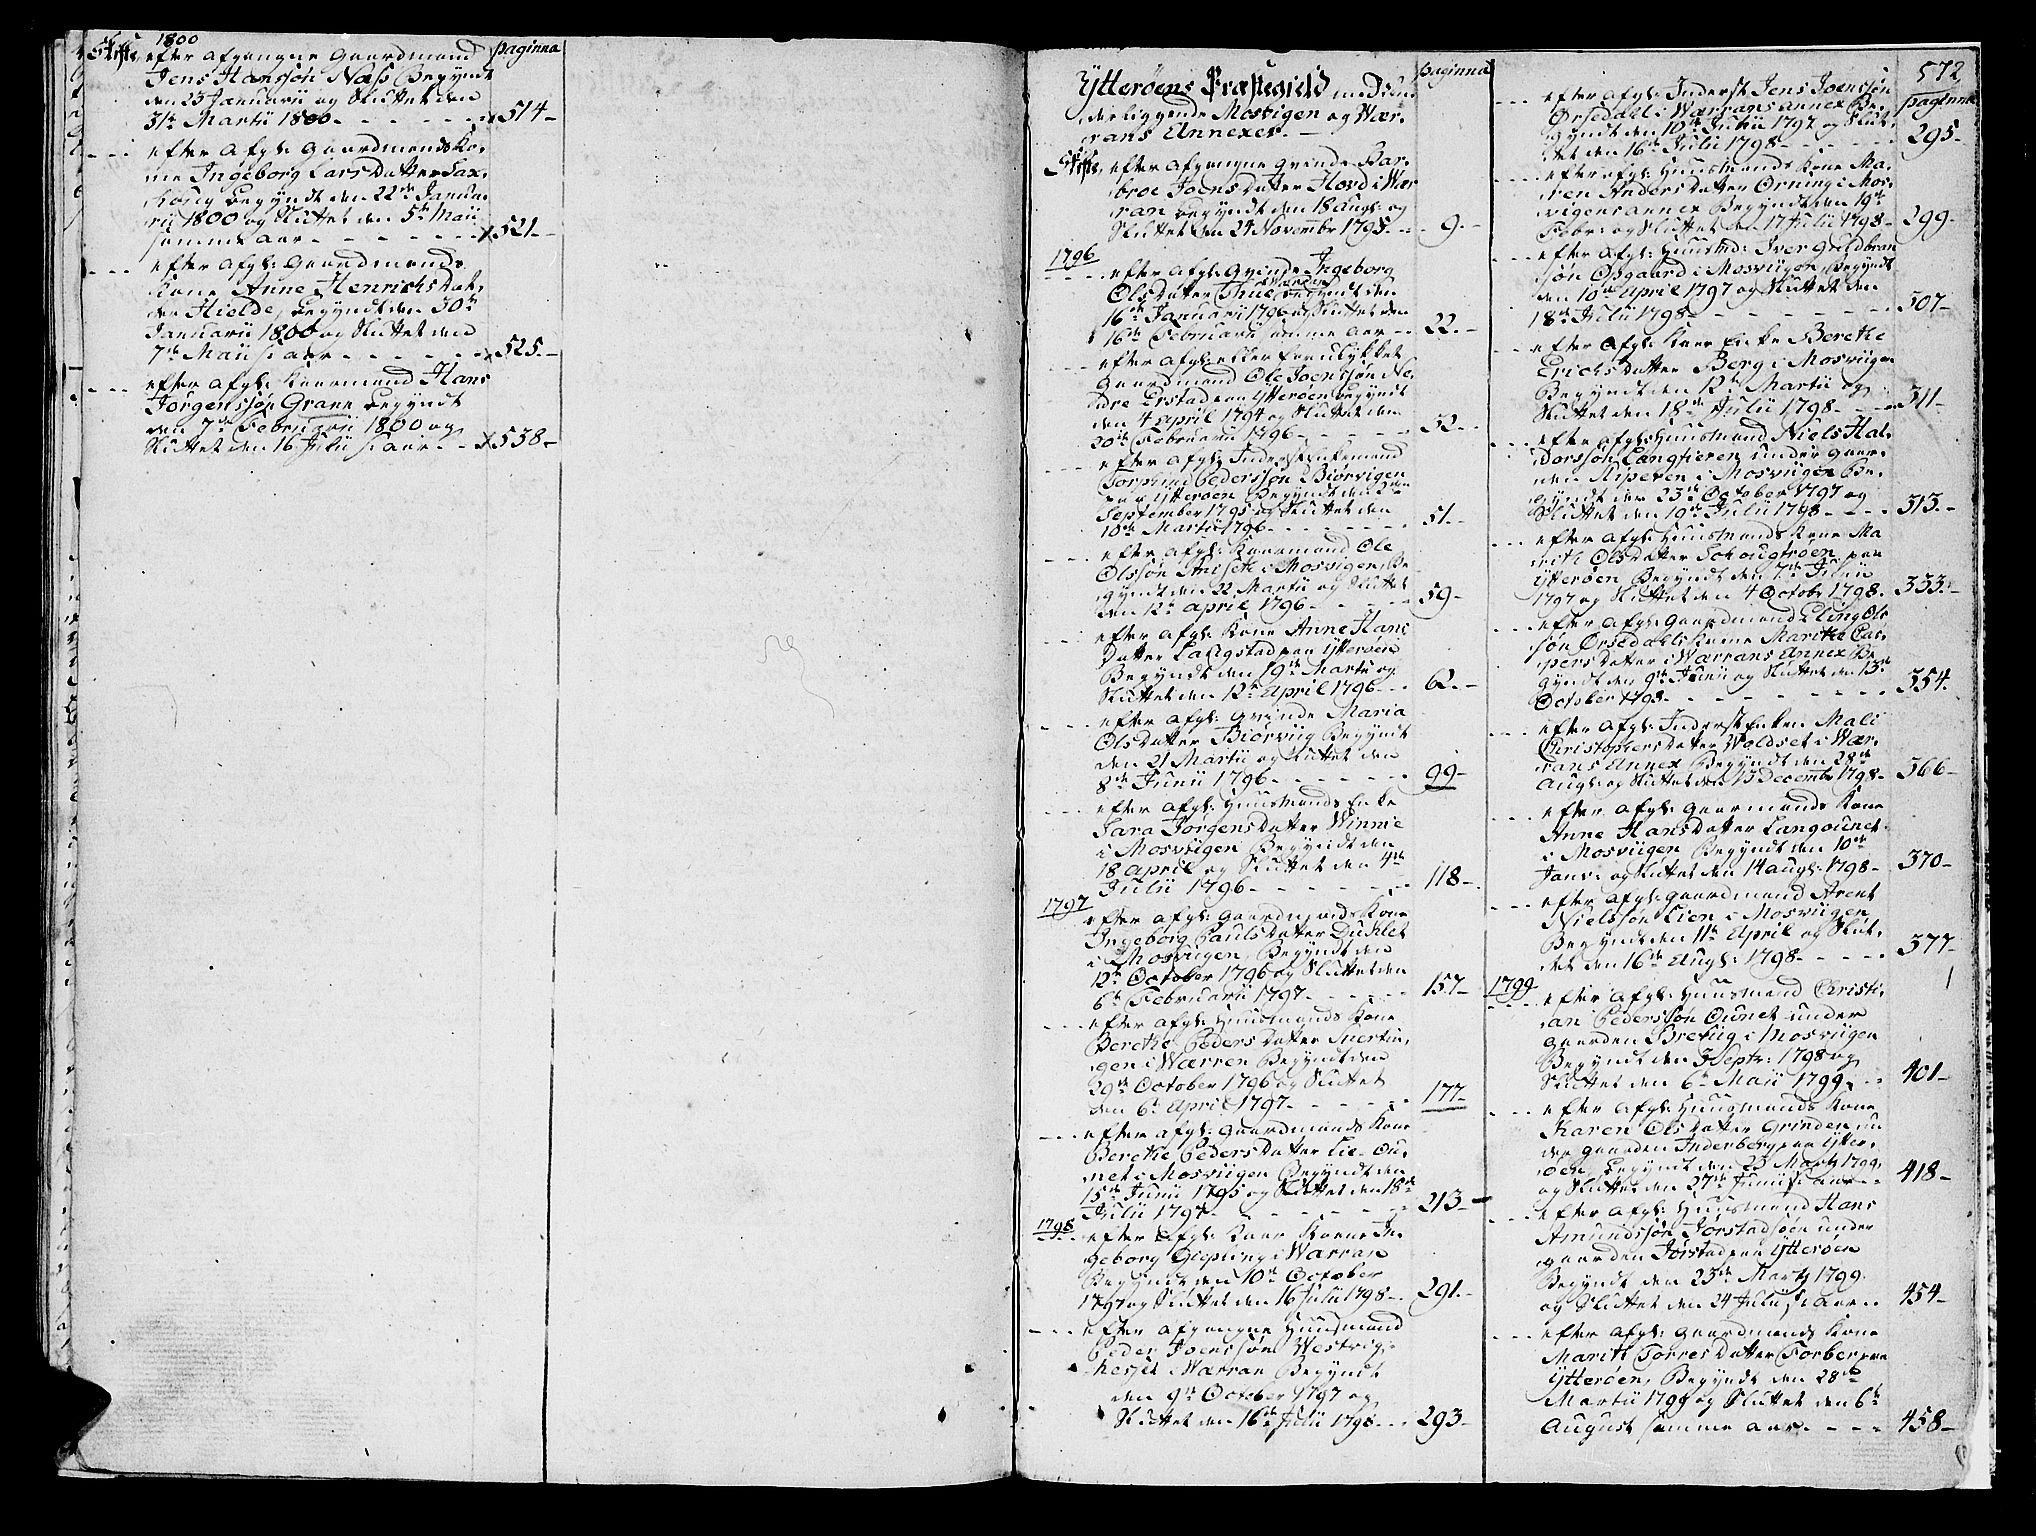 1800
Skifte, efter afgangne Gaardmand paginna
Jens Hanssøn Næss Begyndt
den 23 Januarii og Sluttet den
31te Martii 1800 - - - - x 514-
- - - efter Afgl: Gaardmands Ko,
ne Ingeborg Lars Datter Sax,
houg begyndt den 22de Janua,
rii 1800 og Sluttet den 5te Maii
samme aar - - - - - x 521-
- - - efter Afgl: Gaardmands
Kone Anne Henrichs Dat,
ter Hielde, begyndt den 30te
Januarii 1800 og Sluttet den
7de Maii s: aar - - - - x 525-
- - - efter Afgl: Kaarmand Hans
Jørgenssøn Grann begyndt
den 7de Februarii 1800 og
Sluttet den 16 Julii s: aar - - x 538-
Ytterøens Præstegield med sine paginna
der liggende Mosvigen og Wær,
rans Annexer. -
Skifte, efter afgangne Qvinde Bar,
broe Joens Datter Hovd i Wær
ran begyndt den 18 Augl: og
Sluttet den 24 Novembr 1795 - - 9.-
1796
- - - efter Afgl: Qvinde Ingeborg
Ols Datter Thue Warran begyndt den
16de Januarii 1796 og Sluttet den
16de Februarii samme aar - - 22.-
- - - efter Afgl: eller forulykket
Gaardmand Ole Joenssøn Ne,
dre Erstad paa Ytterøen begyndt
den 4 April 1794 og Sluttet den
20de Februarii 1796 - - - - 32.-
- - - efter Afgl: Inderst Enkemand
Pederssøn Biørvigen
paa Ytterøen Begyndt den 2den
September 1795 og Sluttet den
10de Martii 1796 - - - - - 51.-
- - - efter Afgl: Kaarmand Ole
Olssøn Aniseth i Mosvigen, Be,
gyndt den 22 Martii og Sluttet
den 12te April 1796 - - - - 59-
- - - efter Afgl: Kone Anne Hans
Datter Langstad paa Ytterøen
Begyndt den 19de Martii og
Sluttet den 12te April 1796 - - 62.-
- - - efter Afgl: Qvinde Maria
Ols Datter Biørviig Begyndt
den 21 Martii og Sluttet den
8de Junii 1796 - - - - - 99-
- - - efter Afgl: Huusmands Enke
Sara Jørgens Datter Winnie
i Mosviigen Begyndt den
18 April og Sluttet den 4de
Julii 1796 - - - - - - 118-
1797
efter Afgl: Gaardmands Kone
Ingeborg Pauls Datter Duklet
i Mosviigen, Begyndt den
12te October 1796 og Sluttet den
6te Februarii 1797 - - - - 157-
- - - efter Afgl: Huusmands Kone
Berethe Peders Datter
gen i Warren Begyndt den
29de October 1796 og Sluttet
den 6te April 1797 - - - - 177-
- - - efter Afgl: Gaardmands Kone
Berethe Peders Datter Lie-Ou,
net i Mosviigen Begyndt den
15de Junii 1795 og Sluttet den 18de
Julii 1797 - - - - - 213-
1798
- - - efter Afgl: Kaar Kone In,
geborg Giepling i Warran
Begyndt den 10de October
1797 og Sluttet den 16 Julii 1798 - - 291.-
- - - efter afgangne Huusmand
Peder Joenssøn Westvig,
hesiet i Warran Begyndt
den 9de October 1797 og
Sluttet den 16de Julii 1798 - - 293-
572
paginna
- - - efter Afgl: Inderst Jens Joenssøn
Ørsedahl i Warrans annex Be,
gyndt den 10de Julii 1797 og Slut,
tet den 16de Julii 1798 - - - - 295-
- - - efter Afgl: Huusmands Kone Ma,
ren Anders Datter Orning i Mos,
vigens annex Begyndt den 19de
Febr: og Sluttet den 17 Julii 1798 - 299-
- - - efter Afgl: Huusmd: Iver Guldbran
søn Opgaard i Mosviigen, Begyndt
den 10de April 1797 og Sluttet den
18de Julii 1798 - - - - - 307-
- - - efter Afgl: Kaar Enke Berethe
Erichs Datter Berg i Mosviigen
Begyndt den 12te Martii og
Sluttet den 18de Julii 1798 - - - 311-
- - - efter Afgl: Huusmand Niels Hal,
dorssøn Langtieren under Gaar,
den Kiperen i Mosviigen Be,
gyndt den 23de October 1797 og
Sluttet den 19de Julii 1798 - - - 313.-
- - - efter Afgl: Huusmands Kone Ma
rith Ols Datter Schougtroen paa
Ytterøen Begyndt den 7de Junii
1797 og Sluttet den 4 Octobr 1798. 333.-
- - - efter Afgl: Gaardmand Eling Ols
søn Ørsedahls Kone Marithe Cas,
pers Datter i Warrans Annex Be,
gyndt den 9de Junii og Sluttet den 13de
October 1798 - - - - - 354.
- - - efter Afgl: Inderst Enken Mali
Christophers Datter Woldset i Wær,
rans Annex Begyndt den 28de
Augl: og Sluttet den 13 Decembr 1798 - 366-
- - - efter Afgl: Gaarmands Kone
Anne Hans Datter Langounet
i Mosviigen Begyndt den 10de
Janv: og Sluttet den 14 Augl: 1798 - 370-
- - - efter Afgl: Gaardmand Arent
Nielssøn Lien i Mosviigen
Begyndt den 11te April og Slut,
tet den 16de Augl: 1798 - - - - 377-
1799
- - - efter Afgl: Huusmand Christi,
an Pederssøn Ounet under
Gaarden Bretiig i Mosviigen
Begyndt den 3 Septr: 1798 og
Sluttet den 6te Maii 1799. - - 401-
- - - efter Afgl: Huusmands Kone
Karen Ols Datter Grinden un
der Gaarden Inderberg paa Ytter,
øen, begyndt den 23 Martz 1799,
og Sluttet den 27de Junii s: aar - - 418-
- - - efter Afgl: Huusmand Hans
Amundssøn Jørstadsøen under
Gaarden Jørstad paa Ytterøen
Begyndt den 23de Martz 1799.
og Sluttet den 24 Julii s: aar - - 454-
- - - efter Afgl: Gaardmands Kone
Marith Torres Datter Forber paa
Ytterøen, Begyndt den 28de
Martii 1799 og Sluttet den 6te
August samme aar - - - - 458-